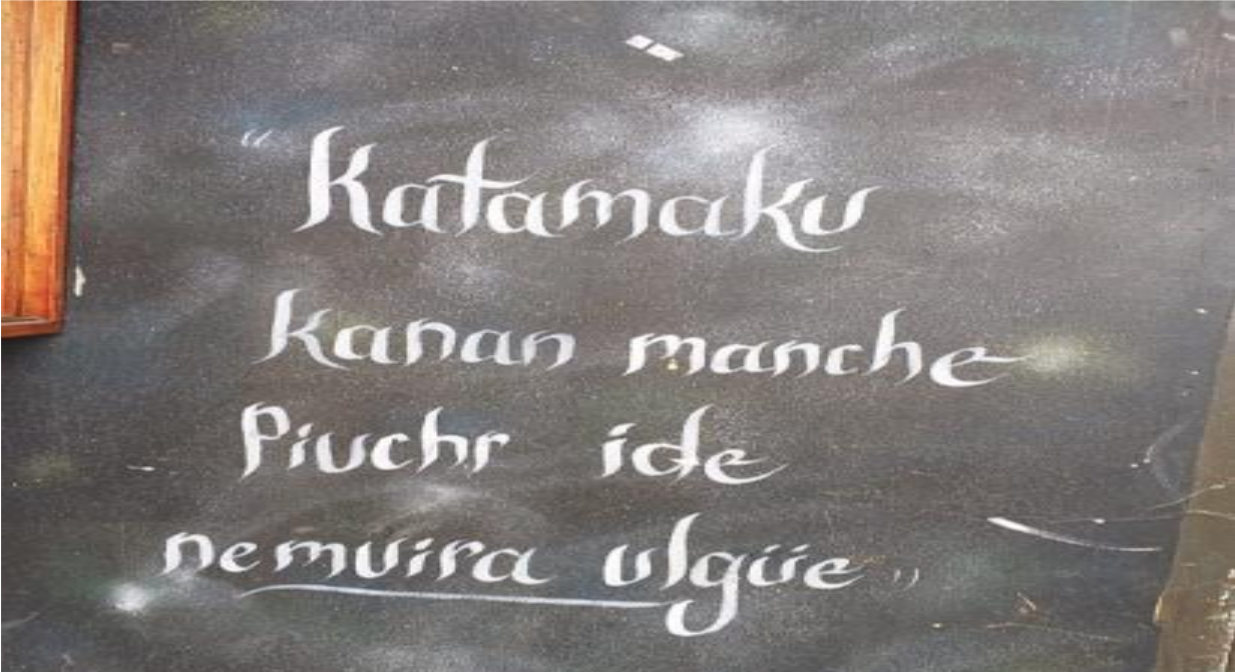 "Katamaku
kanan manche
Piuchr ide
nemuira ulgüe"